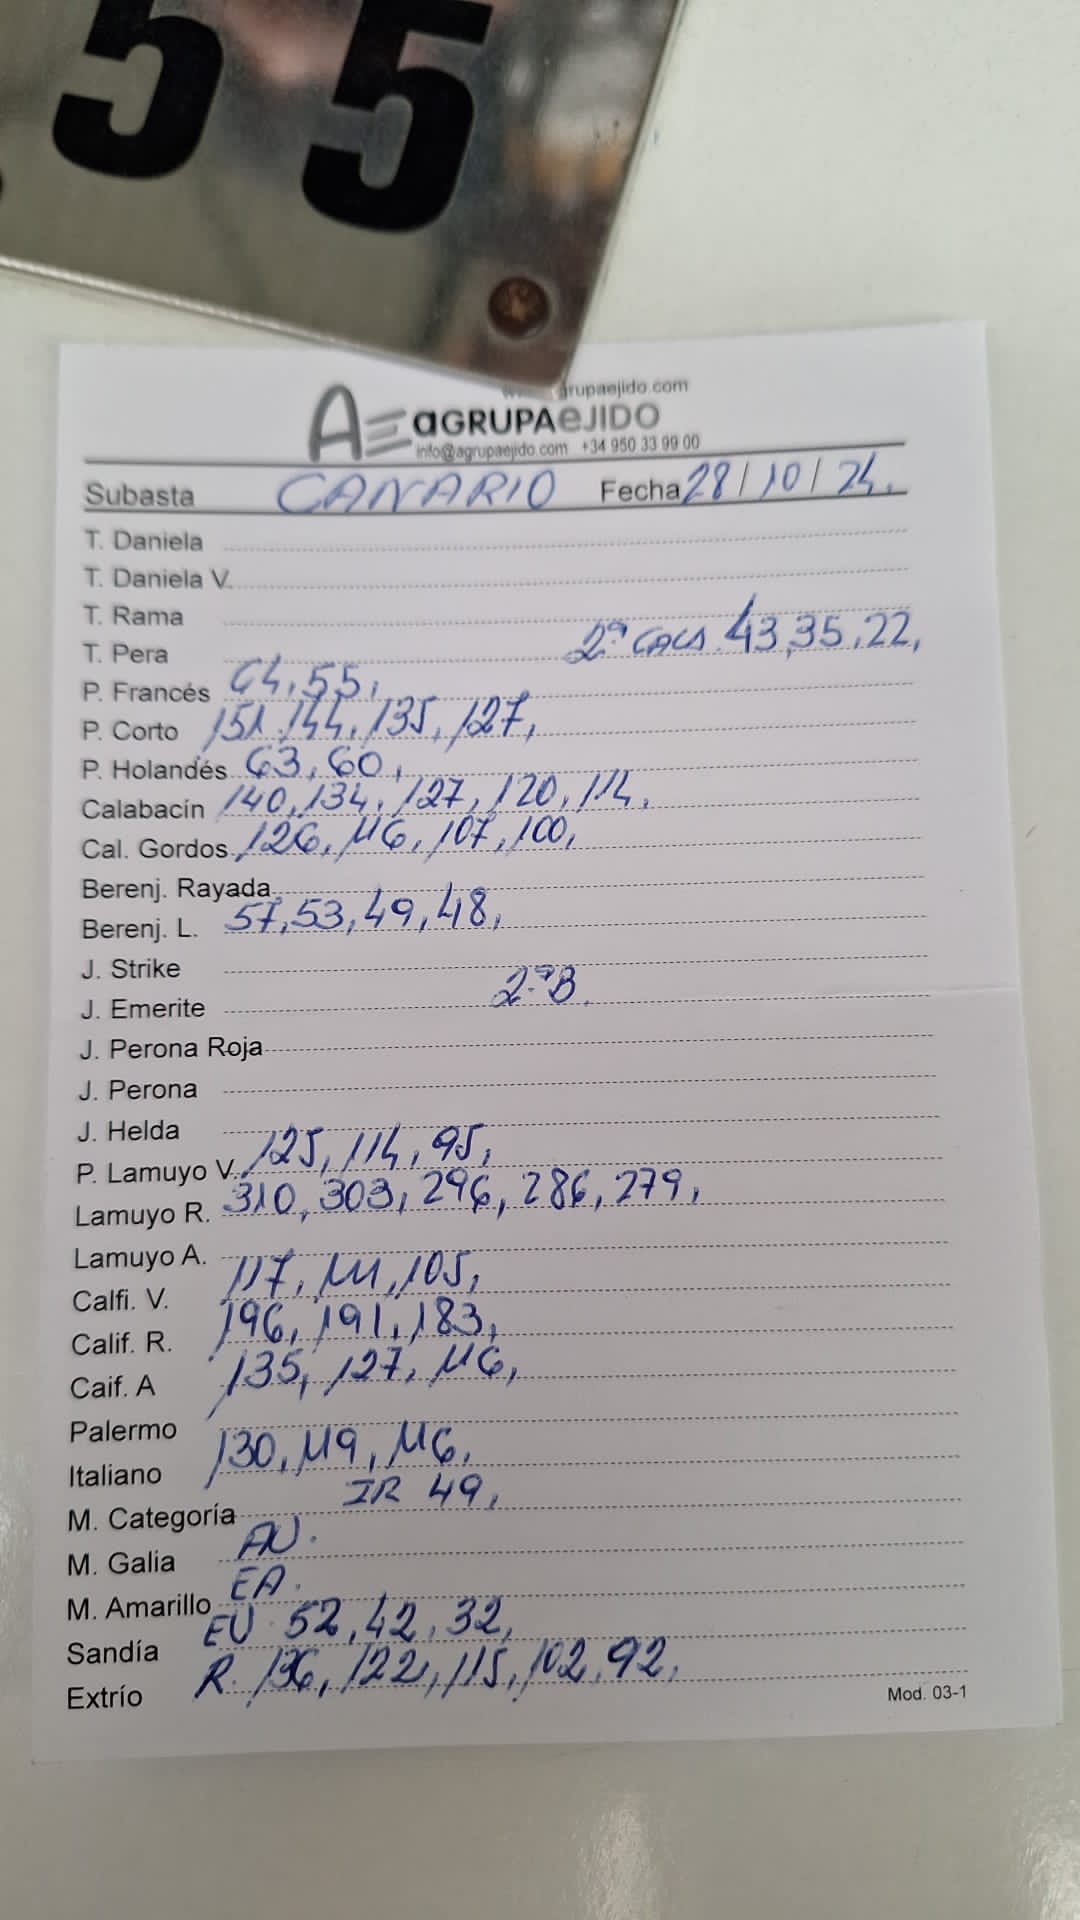 55
grupaejido.com
AE aGRUPAeJIDO
info@agrupaejido.com +34 950 33 99 00
Subasta CANARIO Fecha 28/10/24.
T. Daniela
T. Daniela V.
T. Rama
T. Pera 2ª CALS. 43,35,22,
P. Francés 64,55,
P. Corto 151,144,135,127,
P. Holandés 63,60,
Calabacín 140,134,127,120,114,
Cal. Gordos 126,116,107,100,
Berenj. Rayada
Berenj. L. 57,53,49,48,
J. Strike
J. Emerite 2ªB.
J. Perona Roja
J. Perona
J. Helda
P. Lamuyo V. 125,114,95,
Lamuyo R. 310,303,296,286,279,
Lamuyo A.
Calfi. V. 117,111,105,
Calif. R. 196,191,183,
Caif. A 135,127,116,
Palermo
Italiano 130,119,116,
M. Categoría IR 49,
M. Galia AU.
M. Amarillo EA.
Sandía EU 52,42,32,
Extrío R. 136,122,115,102,92,
Mod. 03-1